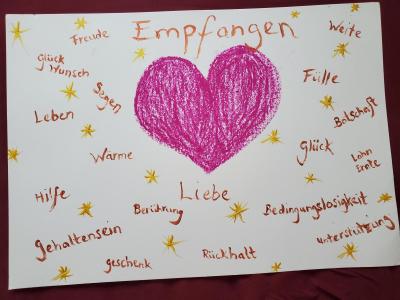 Empfangen
Freude
Weite
Glück
Wunsch
Fülle
Segen
Leben
Botschaft
Wärme
Glück
Lohn
Ernte
Hilfe
Liebe
Berührung
Bedingungslosigkeit
Gehaltensein
Unterstützung
geschenk
Rückhalt